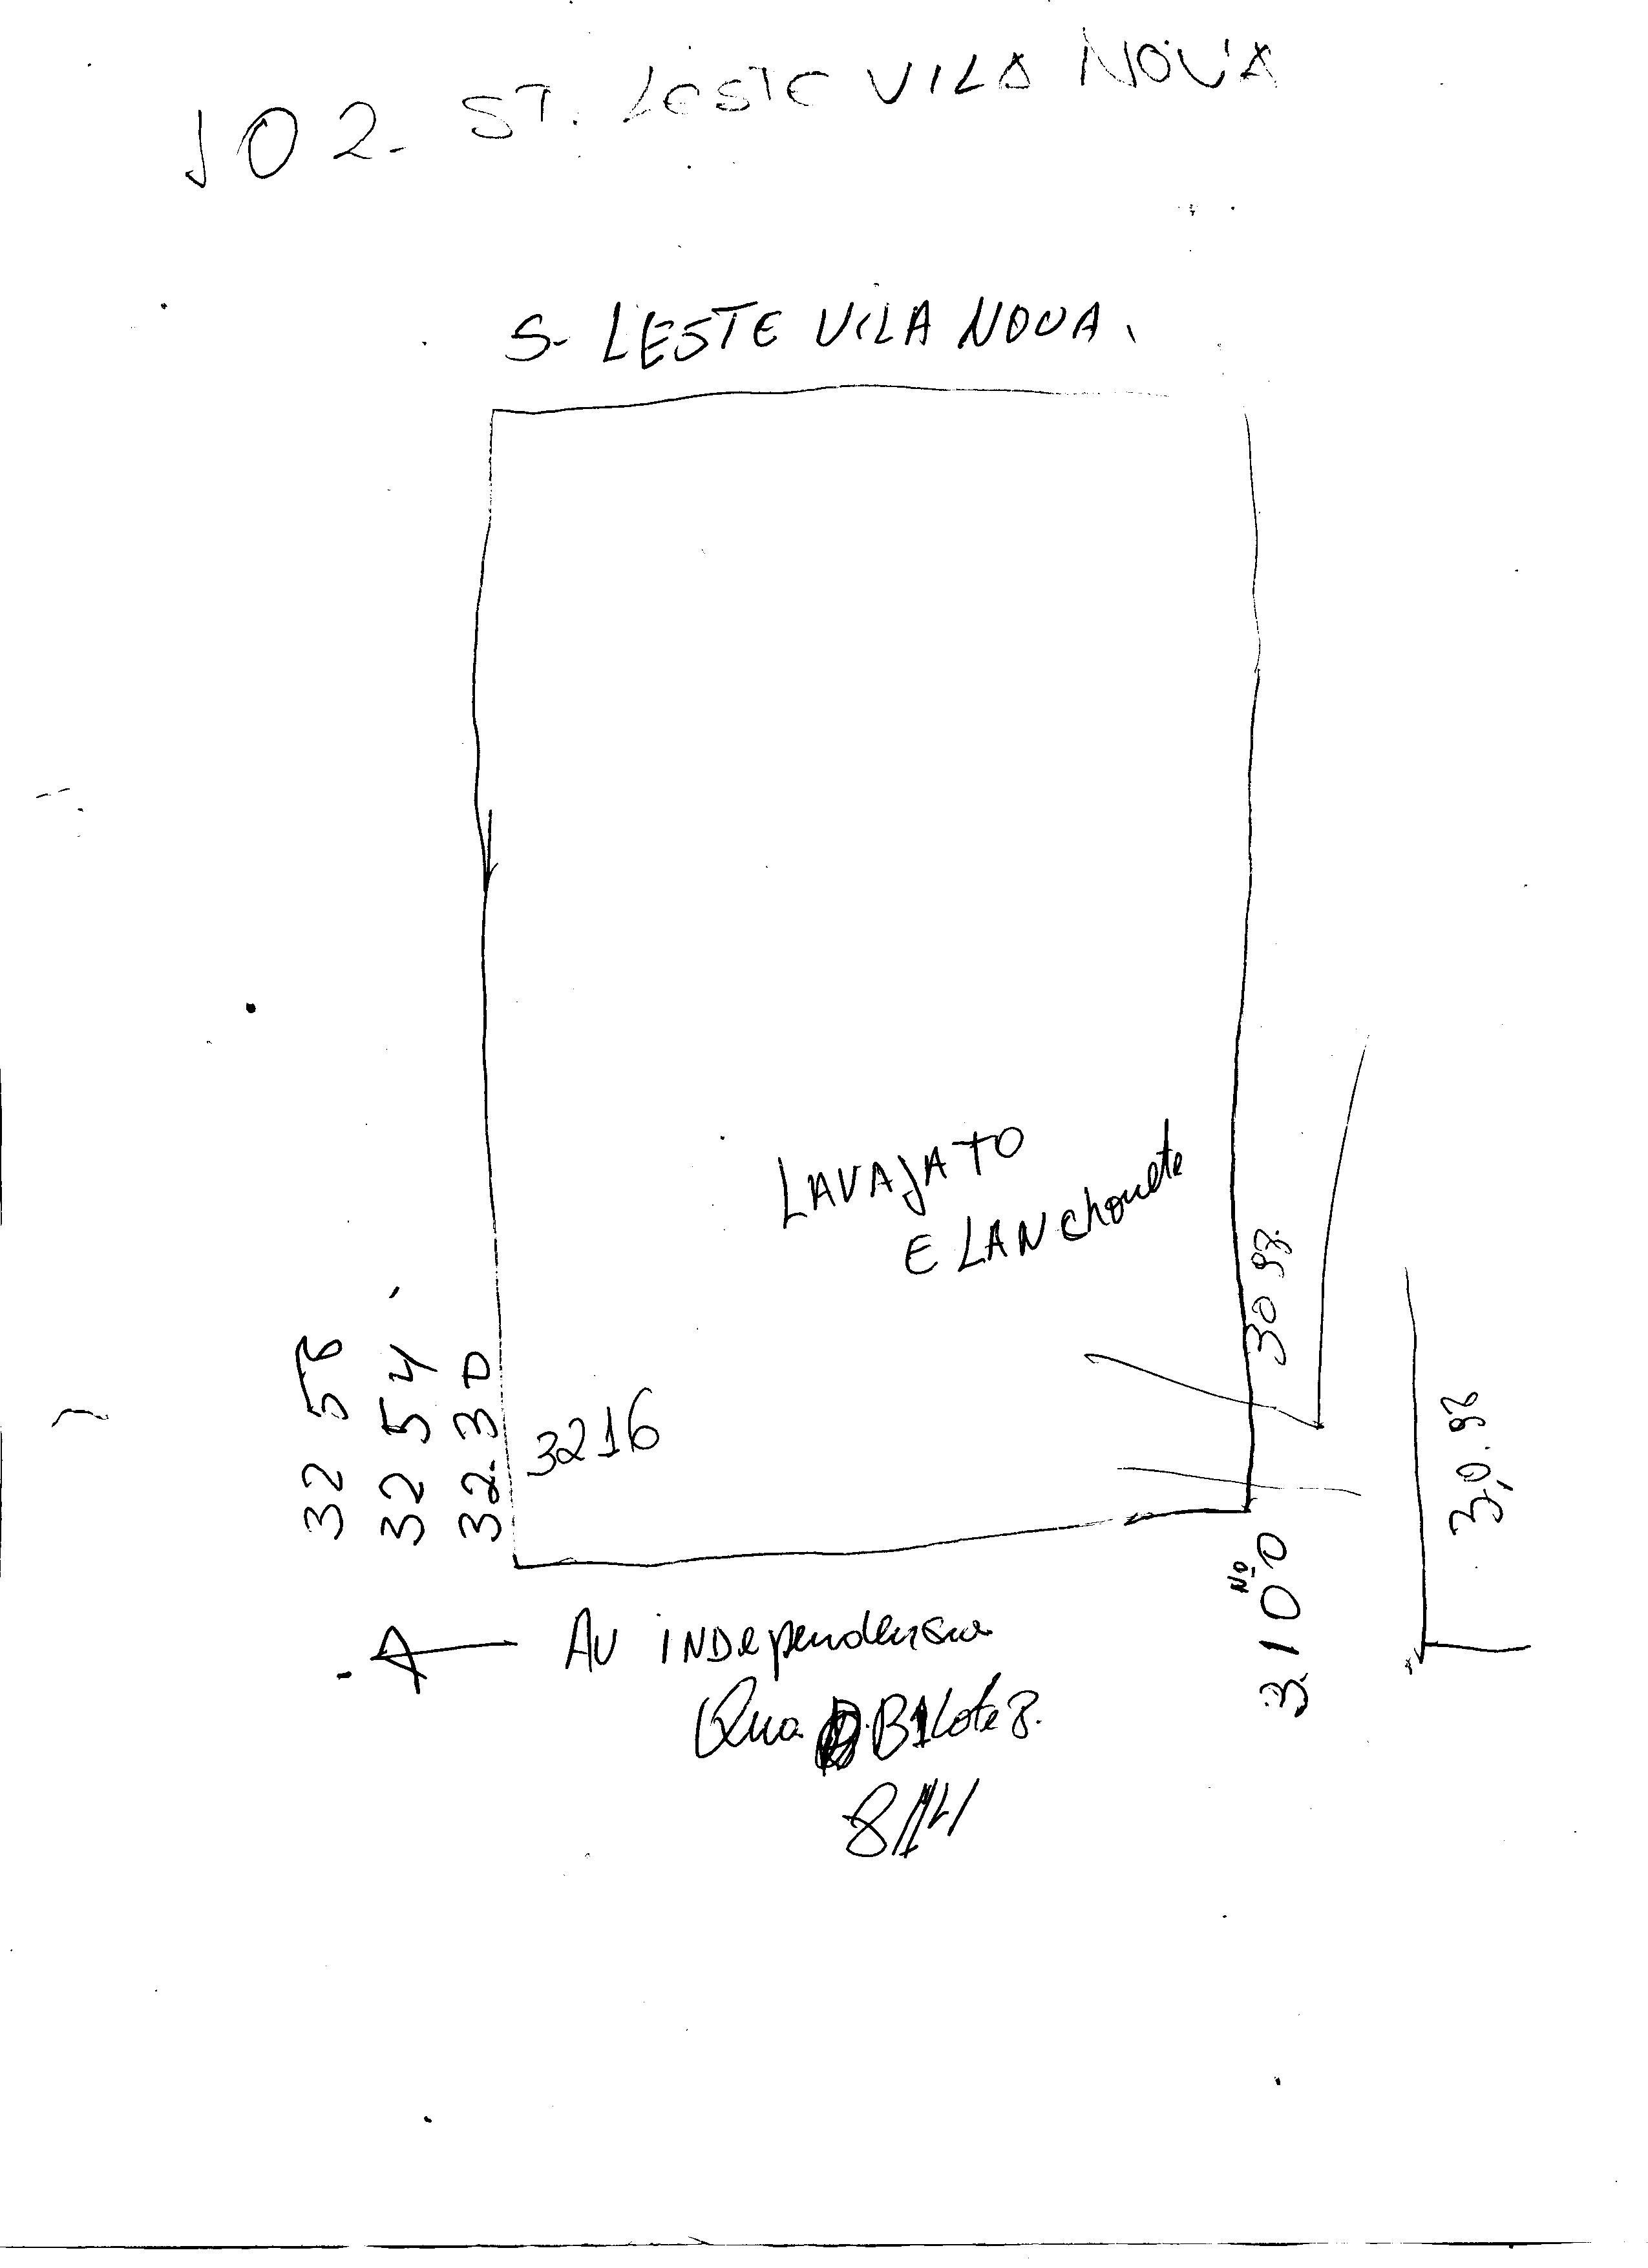 102- ST. LESTE VILA NOVA
S- LESTE VILA NOVA.
LAVAJATO
E LANchonete
30 98.
3256
3254
32.30
3216
30.98
Nº
3100
AV INDependensia
Qua B1 Lote 8.